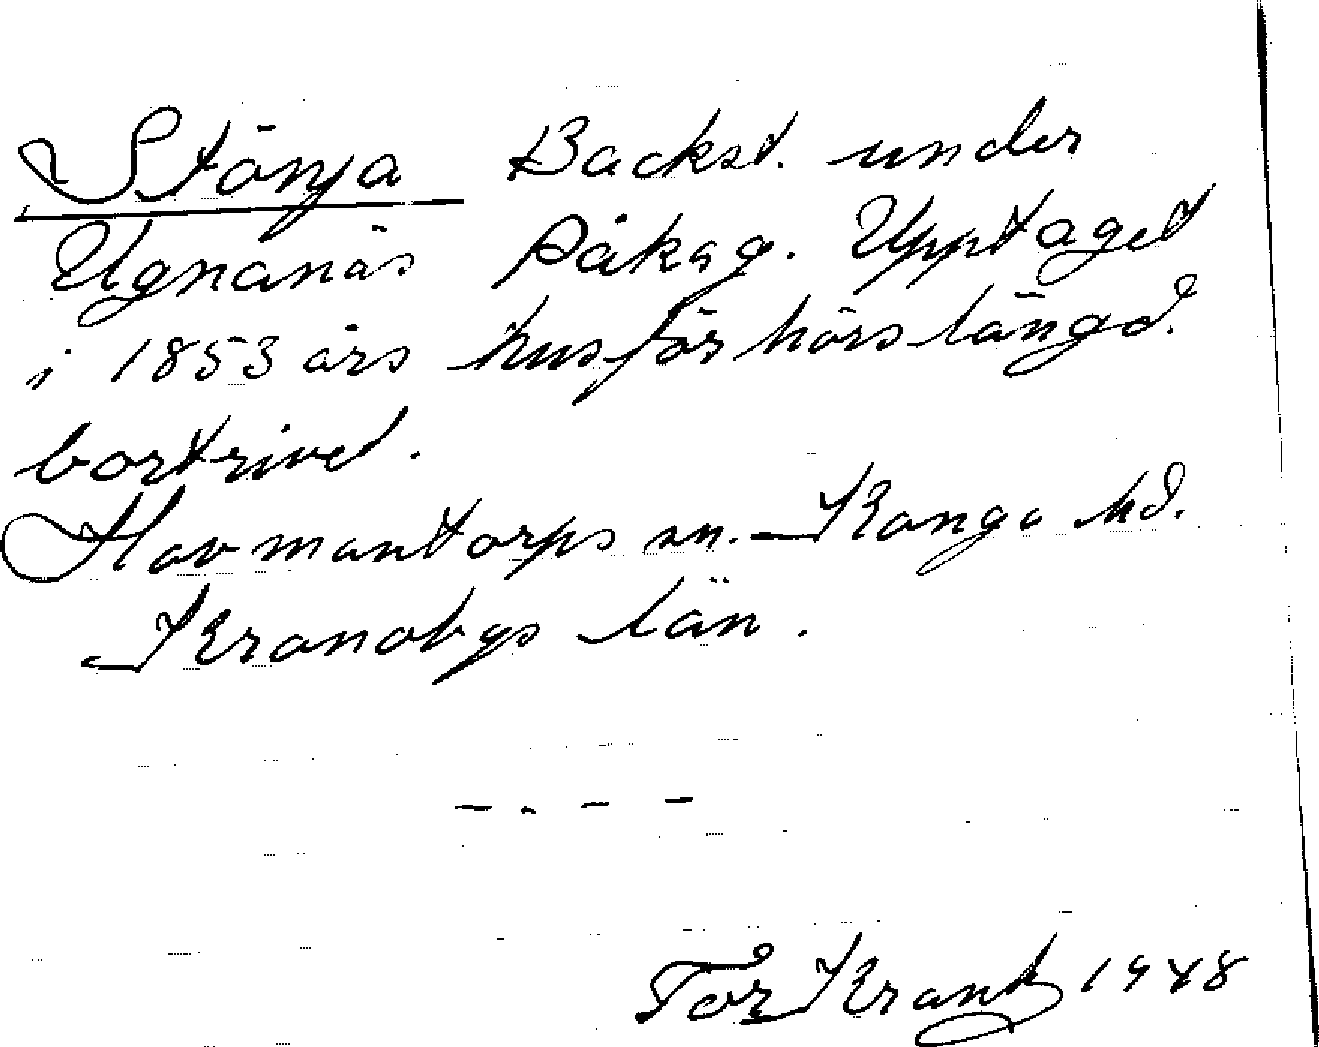 Stönja Backst. under
Ugnanäs Påkag. Upptaget
i 1853 års husförhörslängd.
bortrivet.
Hovmantorps sn. Konga hd.
Kronobgs län.
Tor Krank 1948